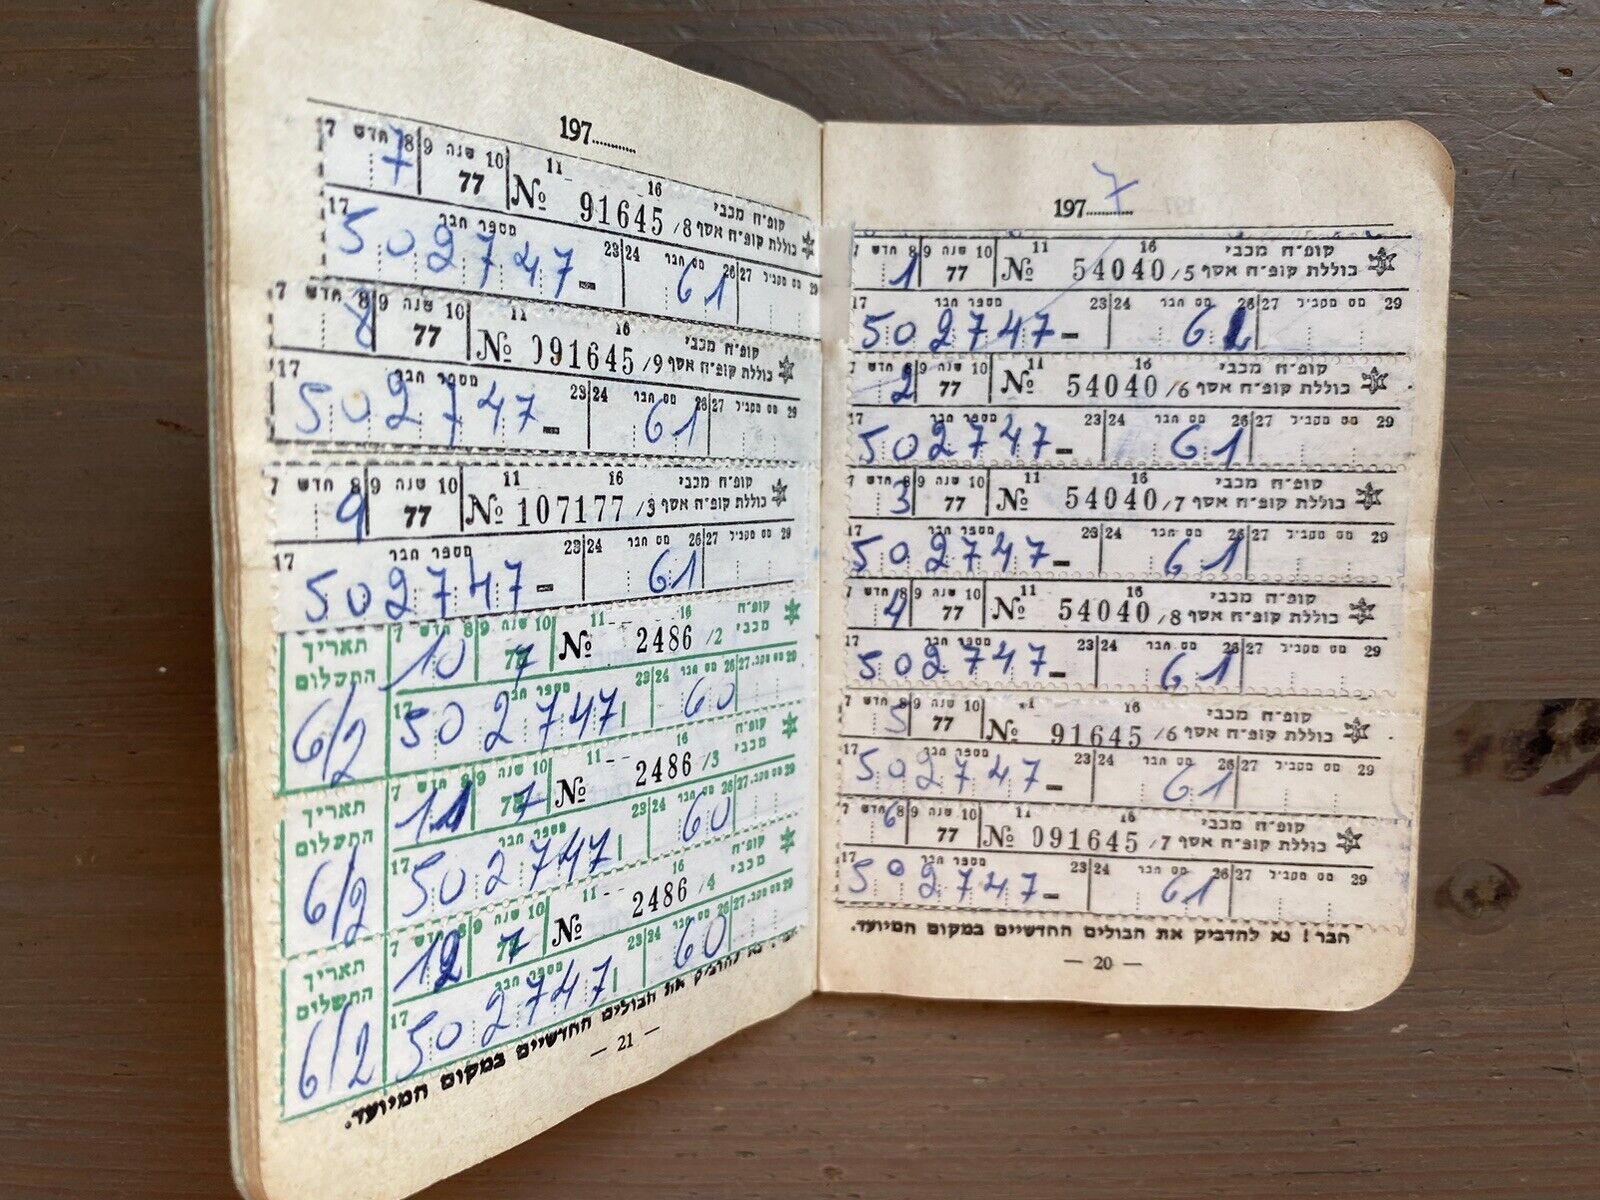 197.......7
7 חדש 8 1 9 שנה 10 77 11 16 № 54040/5 קופ״ח מכבי
כוללת קופ״ח אסף
17 מספר חבר 23 24 מס חבר 26 27 מס מקביל 29
502747- 61
7 חדש 8 2 9 שנה 10 77 11 16 № 54040/6 קופ״ח מכבי
כוללת קופ״ח אסף
17 מספר חבר 23 24 מס חבר 26 27 מס מקביל 29
502747- 61
7 חדש 8 3 9 שנה 10 77 11 16 № 54040/7 קופ״ח מכבי
כוללת קופ״ח אסף
17 מספר חבר 23 24 מס חבר 26 27 מס מקביל 29
502747- 61
7 חדש 8 4 9 שנה 10 77 11 16 № 54040/8 קופ״ח מכבי
כוללת קופ״ח אסף
17 מספר חבר 23 24 מס חבר 26 27 מס מקביל 29
502747- 61
7 חדש 8 5 9 שנה 10 77 16 № 91645/6 קופ״ח מכבי
כוללת קופ״ח אסף
17 מספר חבר 23 24 מס חבר 26 27 מס מקביל 29
502747- 61
7 חדש 8 6 9 שנה 10 77 11 16 № 091645/7 קופ״ח מכבי
כוללת קופ״ח אסף
17 מספר חבר 23 24 מס חבר 26 27 מס מקביל 29
502747- 61
חבר! נא להדביק את הבולים החדשיים במקום המיועד.
— 20 —
197..........
7 חדש 8 7 9 שנה 10 77 11 16 № 91645/8 קופ״ח מכבי
כוללת קופ״ח אסף
17 מספר חבר 23 24 מס חבר 26 27 מס מקביל 29
502747- 61
7 חדש 8 8 9 שנה 10 77 11 16 № 091645/9 קופ״ח מכבי
כוללת קופ״ח אסף
17 מספר חבר 23 24 מס חבר 26 27 מס מקביל 29
502747- 61
7 חדש 8 9 9 שנה 10 77 11 16 № 107177/3 קופ״ח מכבי
כוללת קופ״ח אסף
17 מספר חבר 23 24 מס חבר 26 27 מס מקביל 29
502747- 61
תאריך התשלום 6/2 7 חדש 8 10 9 שנה 10 77 11 16 № 2486/2 קופ״ח מכבי
17 מספר חבר 23 24 מס חבר 26 27 מס מקביל 29
502747 60
תאריך התשלום 6/2 7 חדש 8 11 9 שנה 10 7 11 16 № 2486/3 קופ״ח מכבי
17 מספר חבר 23 24 מס חבר 26 27 מס מקביל 29
502747 60
תאריך התשלום 6/2 7 חדש 8 12 9 שנה 10 7 11 16 № 2486/4 קופ״ח מכבי
17 מספר חבר 23 24 מס חבר 26 27 מס מקביל 29
502747 60
נא להדביק את הבולים החדשיים במקום המיועד.
— 21 —